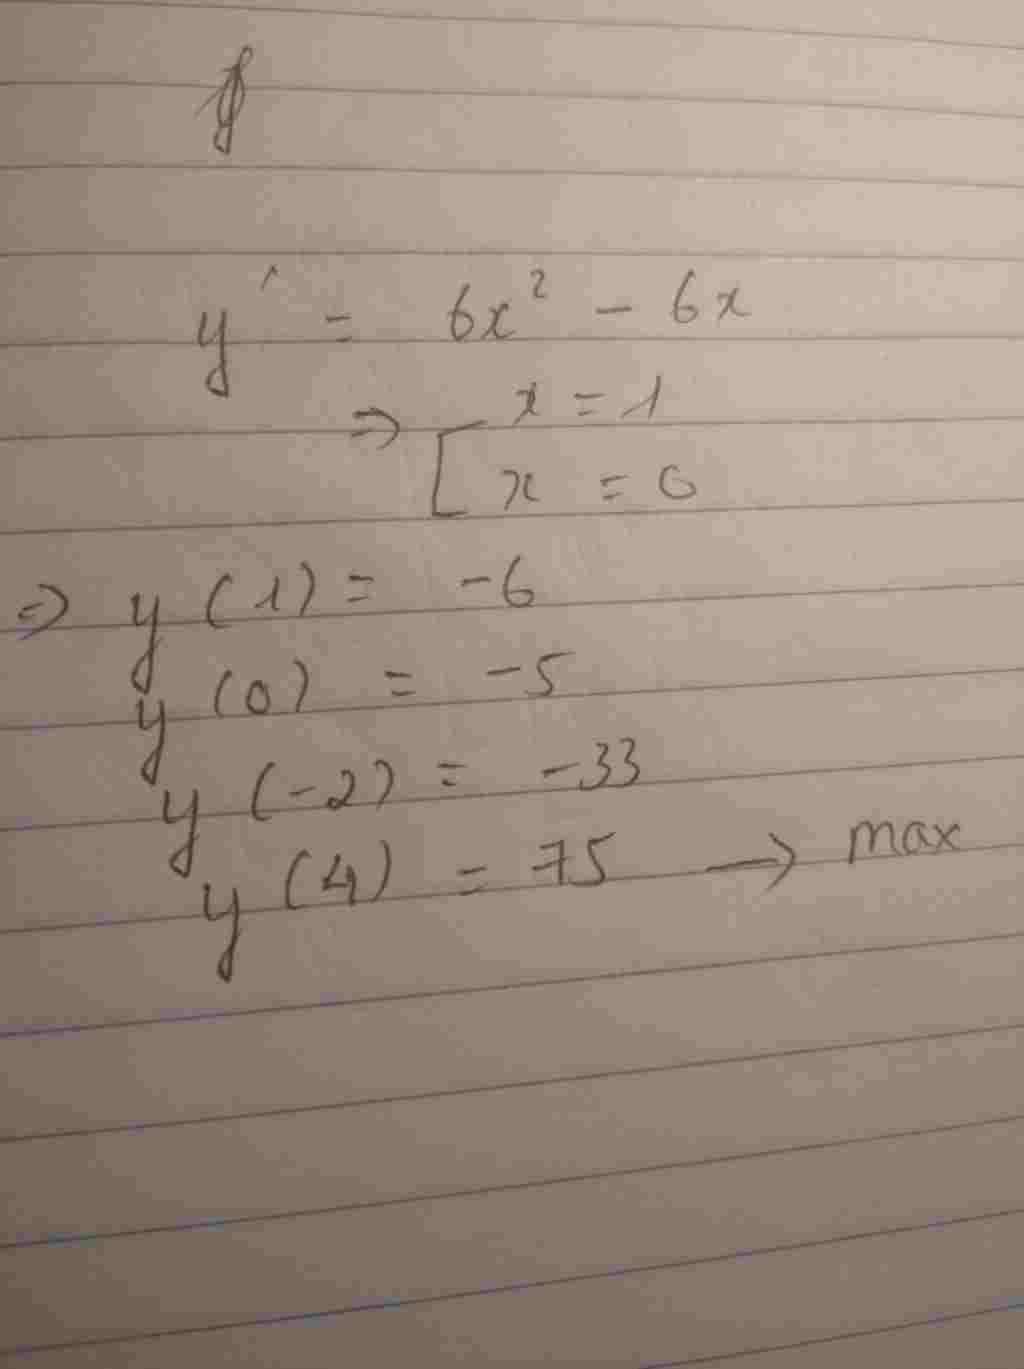 y' = 6x² - 6x
⇒ [ x = 1
x = 0
⇒ y(1) = -6
y(0) = -5
y(-2) = -33
y(4) = 75 → max